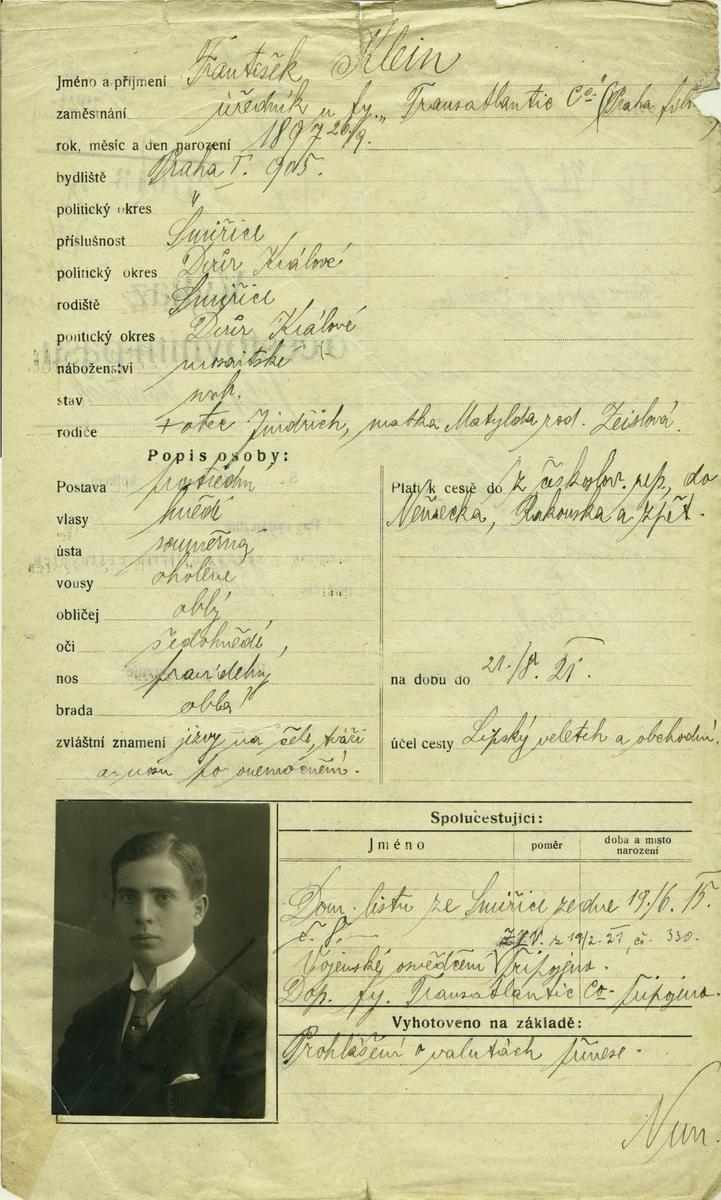 Jméno a příjmení František Klein
zaměstnání úředník u fy. „Transatlantic Co“ (Praha
rok, měsíc a den narození 1897 26/9.
bydliště Praha I. 905.
politický okres "
příslušnost Smiřice
politický okres Dvůr Králové
rodiště Smiřice
politický okres Dvůr Králové
náboženství mosaitské
stav svob.
rodiče + otec Jindřich, matka Matylda rod. Zeislová.
Popis osoby:
Postava prostřední
vlasy hnědé
ústa souměrná
vousy oholené
obličej oblý
oči šedohnědé,
nos pravidelný
brada oblá
zvláštní znamení jizvy na čele, tváři
a nosu po onemocnění.
Platí k cestě do z českoslov. rep. do
Německa, Rakouska a zpět.
na dobu do 21./8. 21.
účel cesty Lipský veletrh a obchodní.
Spolucestující:
Jméno poměr doba a místo narození
Dom. listu ze Smiřice ze dne 19./6. 15.
č. 8. Z.P.V. z 19/2. 21, č. 330.
Vojenské osvědčení připojeno.
Dop. fy. Transatlantic Co připojeno.
Vyhotoveno na základě:
Prohlášení o valutách přinese.